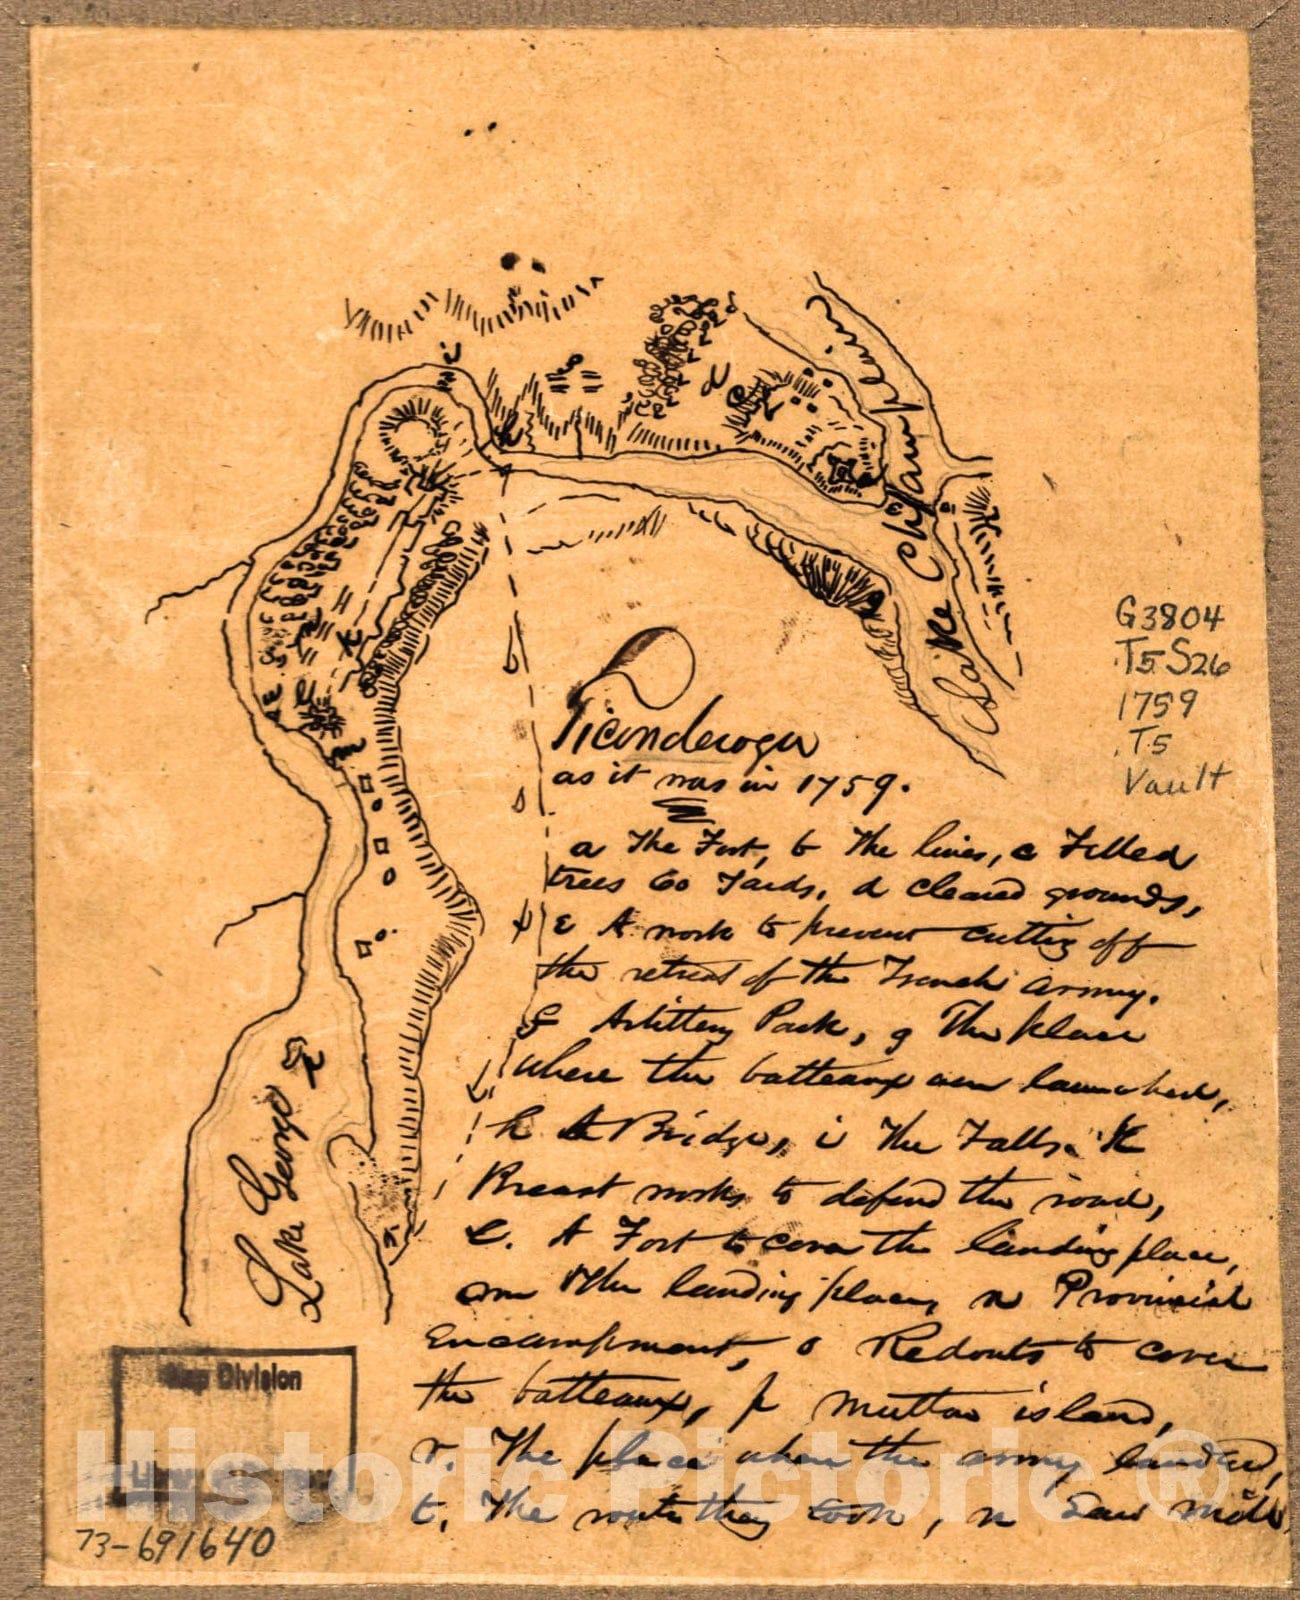 Lake Champlain
G3804
.T5 S26
1759
.T5
Vault
Ticonderoga
as it was in 1759.
a The Fort, b The lines, c Felled
trees 60 Yards, d cleared grounds,
E A work to prevent cutting off
the retreat of the French Army.
F Artillery Park, g The place
where the batteaux were launched,
h A Bridge, i The Falls. K
Breast works to defend the road,
L. A Fort to cover the landing place,
m The landing place, n Provincial
Encampment, o Redouts to cover
the batteaux, p Mutton island,
r. The place where the army landed,
t. The route they took, n Saw Mills
Lake George
Map Division
Library of Congress
73-691640
Historic Pictoric ®